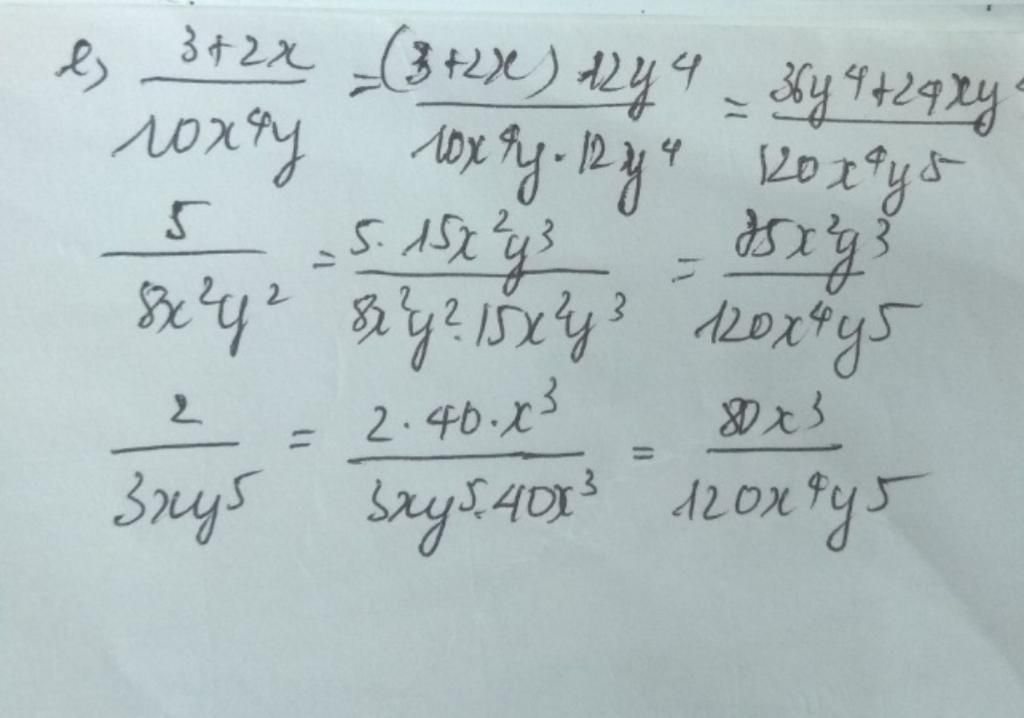 e, \frac{3+2x}{10x^4y} = \frac{(3+2x) 12y^4}{10x^4y \cdot 12y^4} = \frac{36y^4+24xy^4}{120x^4y^5}
\frac{5}{8x^2y^2} = \frac{5 \cdot 15x^2y^3}{8x^2y^2 \cdot 15x^2y^3} = \frac{75x^2y^3}{120x^4y^5}
\frac{2}{3xy^5} = \frac{2 \cdot 40 \cdot x^3}{3xy^5 \cdot 40x^3} = \frac{80x^3}{120x^4y^5}